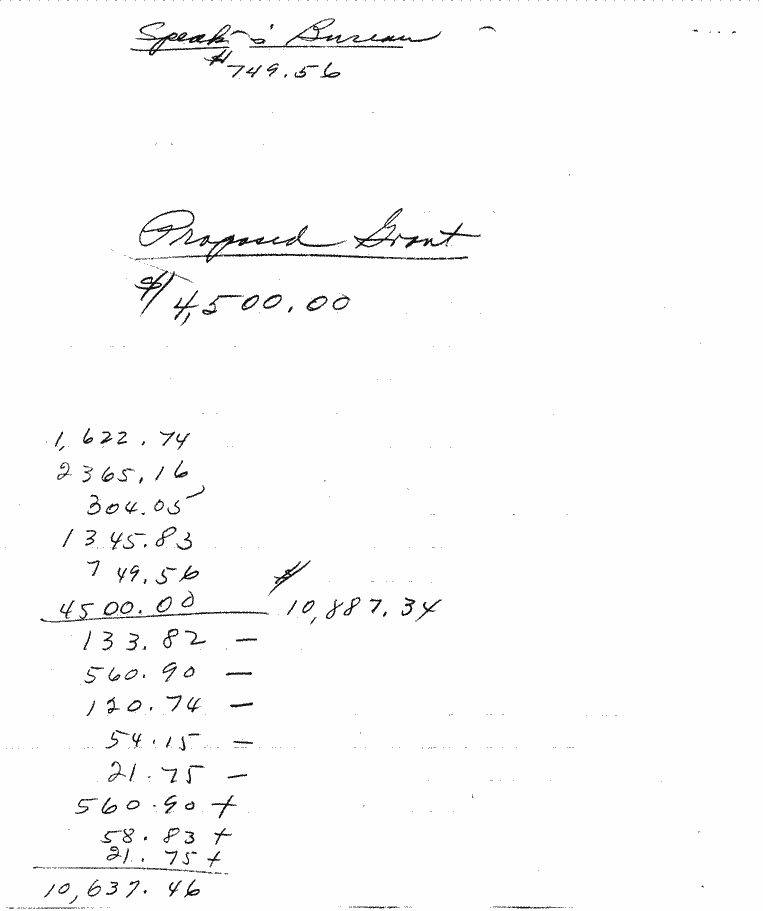 Speak's Bureau
$749.56
Proposed Grant
$4,500.00
1,622.74
2365.16
304.05
1345.83
749.56
4500.00 $10,887.34
133.82 —
560.90 —
120.74 —
54.15 —
21.75 —
560.90 +
58.83 +
21.75 +
10,637.46